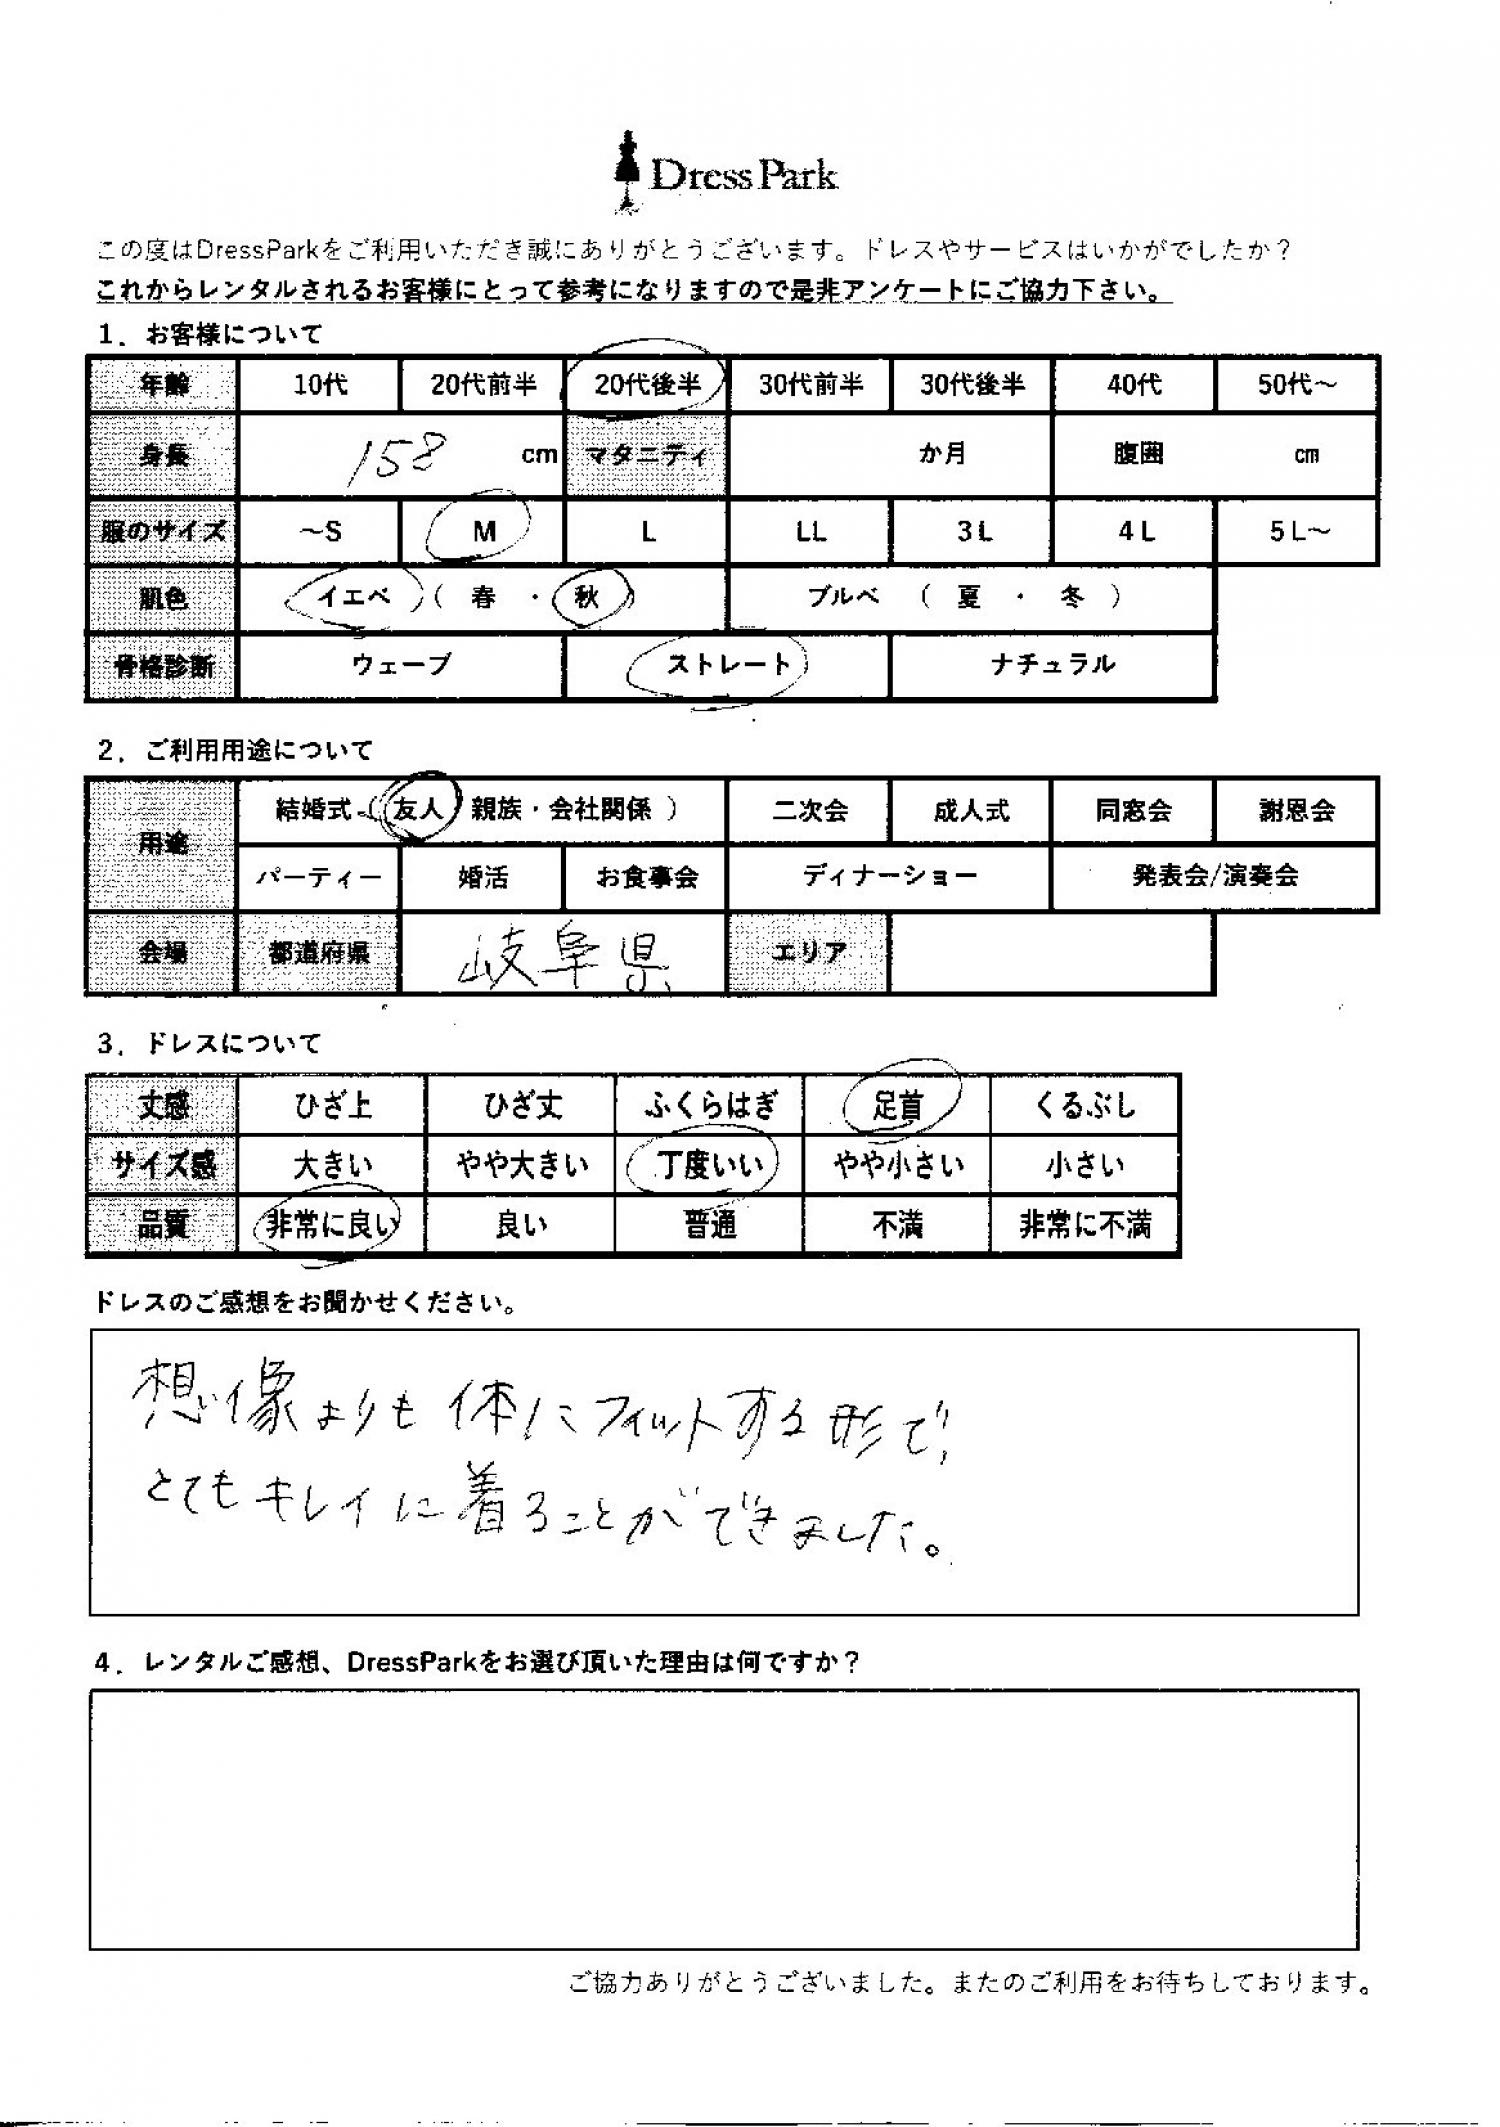 Dress Park
この度はDressParkをご利用いただき誠にありがとうございます。ドレスやサービスはいかがでしたか？
これからレンタルされるお客様にとって参考になりますので是非アンケートにご協力下さい。
1．お客様について
年齢 10代 20代前半 20代後半 30代前半 30代後半 40代 50代～
身長 158 cm マタニティ か月 腹囲 cm
服のサイズ ～S M L LL 3L 4L 5L～
肌色 イエベ （ 春 ・ 秋 ） ブルベ （ 夏 ・ 冬 ）
骨格診断 ウェーブ ストレート ナチュラル
2．ご利用用途について
用途 結婚式（ 友人 親族・会社関係 ） 二次会 成人式 同窓会 謝恩会
パーティー 婚活 お食事会 ディナーショー 発表会/演奏会
会場 都道府県 岐阜県 エリア
3．ドレスについて
丈感 ひざ上 ひざ丈 ふくらはぎ 足首 くるぶし
サイズ感 大きい やや大きい 丁度いい やや小さい 小さい
品質 非常に良い 良い 普通 不満 非常に不満
ドレスのご感想をお聞かせください。
想像よりも体にフィットする形で、
とてもキレイに着ることができました。
4．レンタルご感想、DressParkをお選び頂いた理由は何ですか？
ご協力ありがとうございました。またのご利用をお待ちしております。